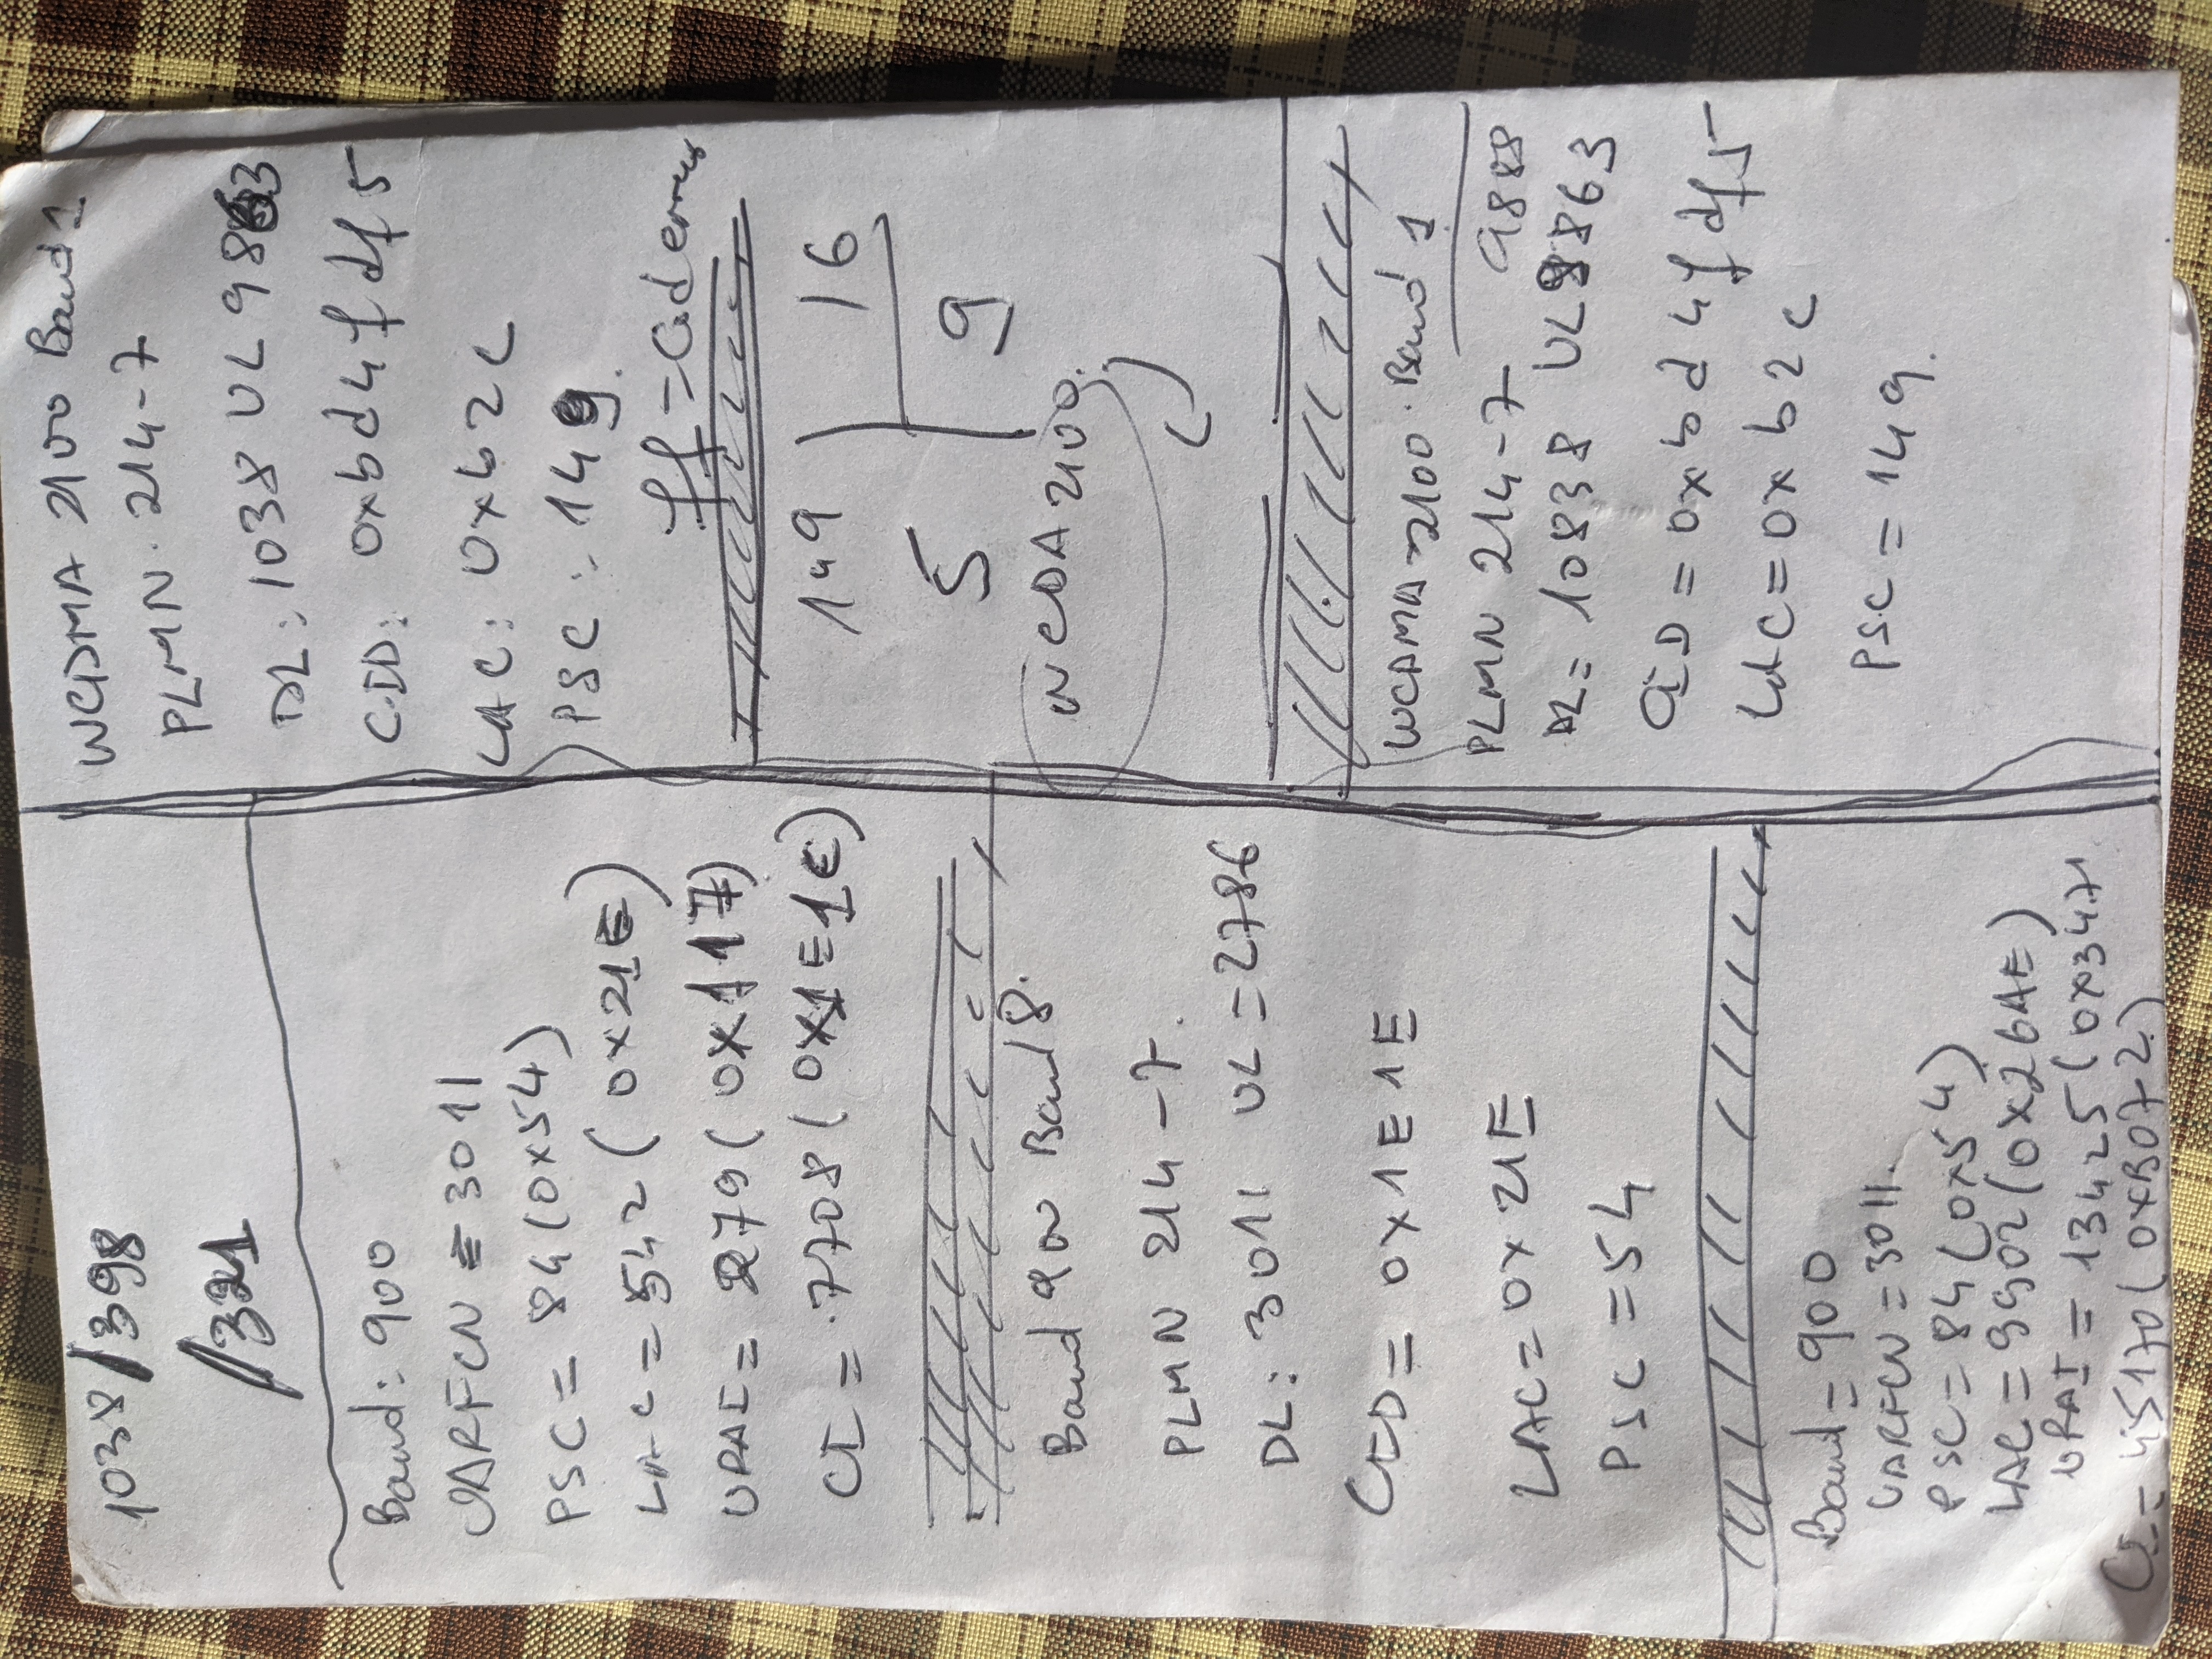 1038/398
/321
Band: 900
UARFCN = 3011
PSC = 84 (0x54)
LAC = 542 (0x21E)
URAI = 279 (0x117)
CI = 7708 (0x1E1C)
Band 900 Band 8.
PLMN 214-7.
DL: 3011 UL = 2786
CID = 0x1E1E
LAC = 0x21E
PSC = 54
Band = 900
UARFCN = 3011.
PSC = 84 (0x54)
LAC = 9902 (0x26AE)
URAI = 13425 (0x3471
CI = 45170 (0xB072)
WCDMA 2100 Band 1
PLMN. 214-7
DL: 1038 UL 9863
CID: 0xbd4fdf5
LAC: 0xb2c
PSC: 149.
ff =
149 16
5 9
WCDA 2100.
WCDMA 2100. Band 1
PLMN 214-7 9888
DL = 10838 UL 9863
CID = 0xbd4fdf5
LAC = 0xb2c
PSC = 149.